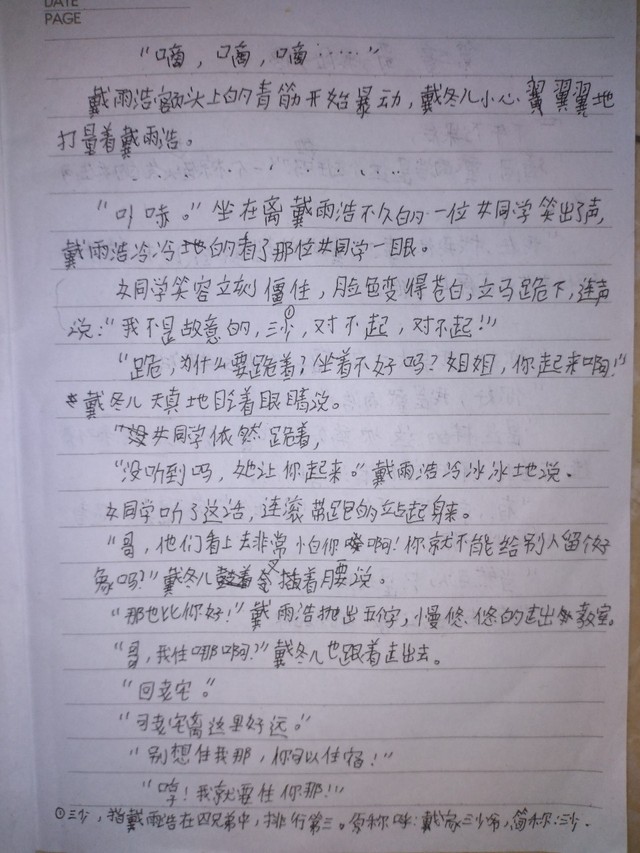 DATE
PAGE
“嘀，嘀，嘀……”
戴雨浩额头上的青筋开始暴动，戴冬儿小心翼翼翼地
打量着戴雨浩。
“叭哧。”坐在离戴雨浩不久的一位女同学笑出了声，
戴雨浩冷冷地的看了那位女同学一眼。
女同学笑容立刻僵住，脸色变得苍白，立马跪下，连声
说：“我不是故意的，三少①，对不起，对不起！”
“跪，为什么要跪着？坐着不好吗？姐姐，你起来啊！”
戴冬儿天真地眨着眼睛说。
“没女同学依然跪着，
“没听到吗，她让你起来。”戴雨浩冷冰冰地说。
女同学听了这话，连滚带爬的站起身来。
“哥，他们看上去非常怕你啊！你就不能给别人留个好
象吗？”戴冬儿叉着腰说。
“那也比你好！”戴雨浩抛出五个字，慢悠悠的走出教室。
“哥，我住哪啊？”戴冬儿也跟着走出去。
“回老宅。”
“可老宅离这里好远。”
“别想住我那，你可以住宿！”
“哼！我就要住你那！”
①三少，指戴雨浩在四兄弟中，排行第三。原称呼：戴家三少爷，简称：三少.